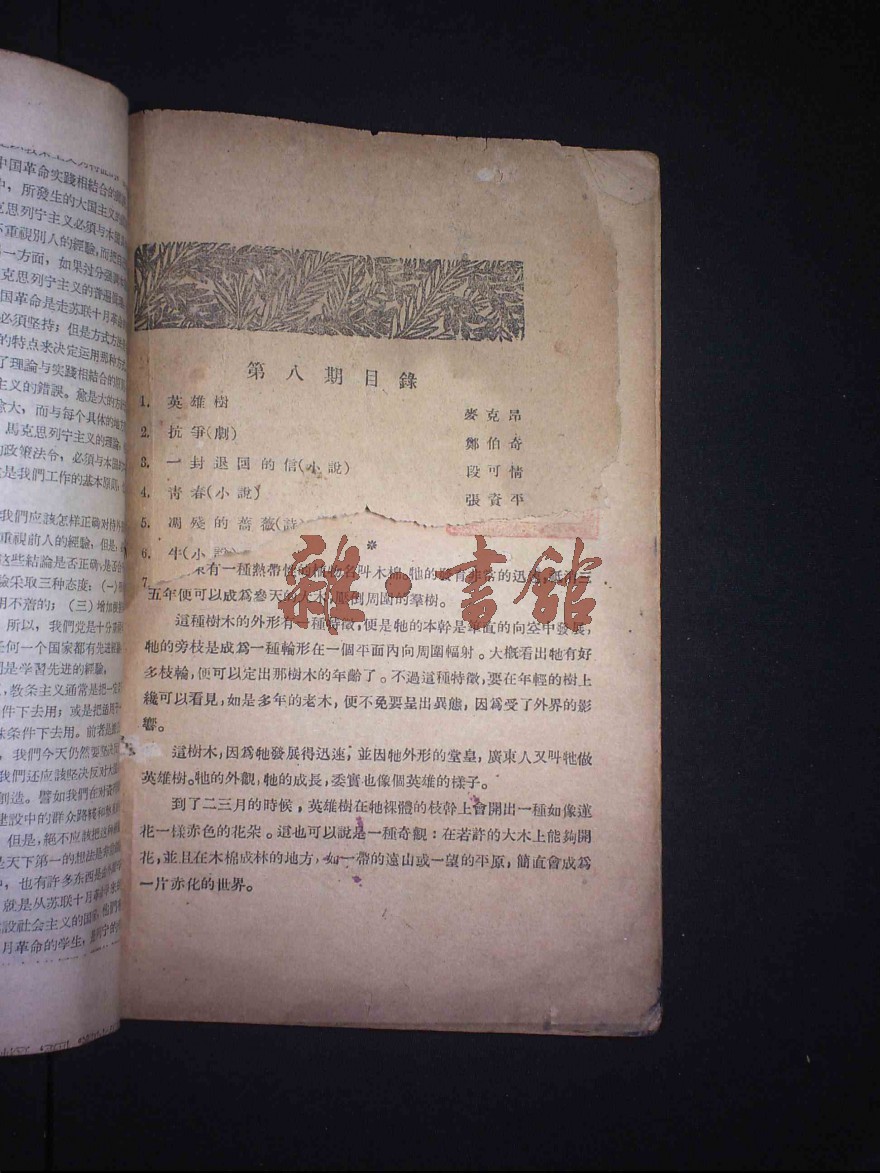 中国革命实踐相結合的
中，所發生的大国主义的
克思列宁主义必須与本国
不重視別人的經驗，而把
一方面，如果过分强調
克思列宁主义的普遍
国革命是走苏联十月革命
必須坚持；但是方式方法
的特点来决定运用那种方
了理論与实踐相結合的
主义的錯誤。愈是大的方
愈大，而与每个具体的地
馬克思列宁主义的理論，
的政策法令，必須与本国
是我們工作的基本原則
我們应該怎样正确对待外
重視前人的經驗，但是，
这些結論是否正确；是否合
驗采取三种态度：(一)
用不着的；(三)增加
所以，我們党是十分重
任何一个国家都有先进經驗
是学習先进的經驗，
，教条主义通常是把一定
件下去用；或是把适用于
殊条件下去用。前者是
，我們今天仍然要坚决反
我們还应該坚决反对大国
創造。譬如我們在对資
建設中的群众路綫和
但是，絕不应該把这种
是天下第一的想法是
中，也有許多东西是
就是从苏联十月革命学来
建設社会主义的国家，他們
月革命的学生，是列宁的
第八期目錄
1. 英雄樹 麥克昂
2. 抗爭(劇) 鄭伯奇
3. 一封退回的信(小說) 段可情
4. 青春(小說) 張資平
5. 凋殘的薔薇(詩)
6. 牛(小說)
7.
※
來有一種熱帶性的植物名叫木棉。牠的發育非常的迅速，祇消三
五年便可以成爲參天的大木，壓倒周圍的羣樹。
這種樹木的外形有一種特徵，便是牠的本幹是筆直的向空中發展，
牠的旁枝是成爲一種輪形在一個平面內向周圍輻射。大概看出牠有好
多枝輪，便可以定出那樹木的年齡了。不過這種特徵，要在年輕的樹上
纔可以看見，如是多年的老木，便不免要呈出異態，因爲受了外界的影
響。
這樹木，因爲牠發展得迅速，並因牠外形的堂皇，廣東人又叫牠做
英雄樹。牠的外觀，牠的成長，委實也像個英雄的樣子。
到了二三月的時候，英雄樹在牠裸體的枝幹上會開出一種如像蓮
花一樣赤色的花朶。這也可以說是一種奇觀：在若許的大木上能夠開
花，並且在木棉成林的地方，如一帶的遠山或一望的平原，簡直會成爲
一片赤化的世界。
雜·書舘